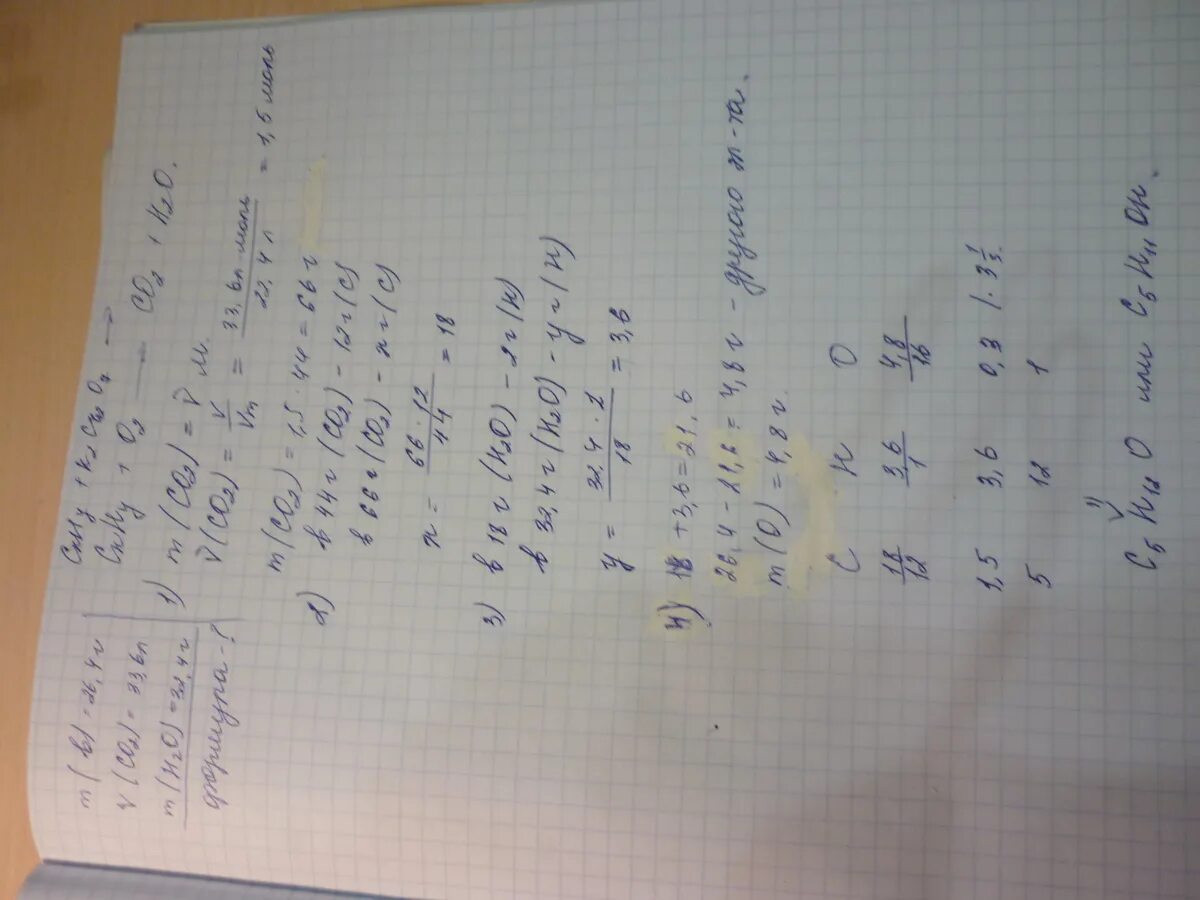 m(в) = 26,4г
V(CO₂) = 33,6л
m(H₂O) = 32,4г
формула - ?
CxHy + K₂Cr₂O₇ →
CxHy + O₂ → CO₂ + H₂O.
1) m(CO₂) = ν̃ M.
ν̃(CO₂) = V/Vm = 33,6л·моль/22,4л = 1,5 моль
m(CO₂) = 1,5 · 44 = 66г
2) в 44г (CO₂) - 12г (C)
в 66г (CO₂) - xг (C)
x = 66·12/44 = 18
3) в 18г (H₂O) - 2г (H)
в 32,4г (H₂O) - yг (H)
y = 32.4·2/18 = 3,6
4) 18 + 3,6 = 21,6
26,4 - 21,6 = 4,8г - другого эл-та.
m(O) = 4,8г.
C H O
18/12 3,6/1 4,8/16
1,5 3,6 0,3 |·3 1/3.
5 12 1
⇓
C₅H₁₂O или C₅H₁₁OH.